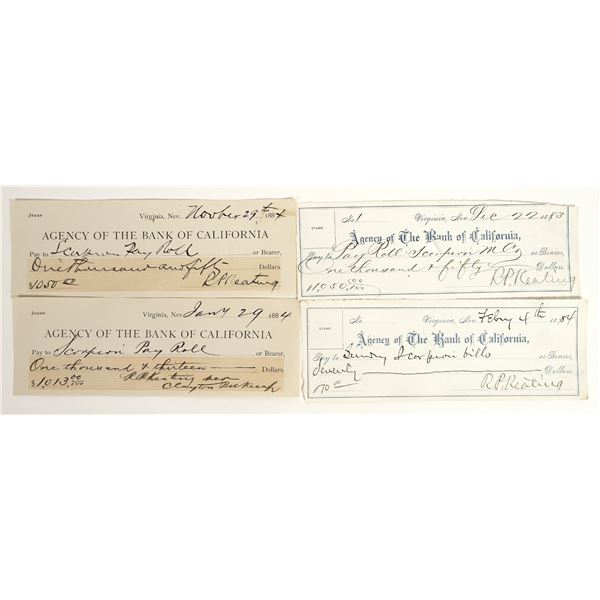 STAMP
Virginia, Nev. Novber 29th 1884
AGENCY OF THE BANK OF CALIFORNIA
Pay to Scorpion Pay Roll or Bearer,
One thousand and fifty Dollars.
$1050.00
R.P. Keating
STAMP.
No. 1 Virginia, Nev. Dec 22 1883
Agency of The Bank of California,
Pay to Pay Roll Scorpion M Co or Bearer,
One thousand & fifty Dollars.
$1,050.00/100
R.P. Keating
STAMP.
Virginia, Nev. Jany 29, 1884
AGENCY OF THE BANK OF CALIFORNIA
Pay to Scorpion Pay Roll or Bearer,
One thousand & thirteen Dollars.
$1,013.00/100
R.P. Keating per
Clayton Belknap
STAMP.
No. Virginia, Nev. Febry 4th 1884
Agency of The Bank of California,
Pay to Sundry Scorpion bills or Bearer,
Seventy Dollars.
$70.00
R.P. Keating